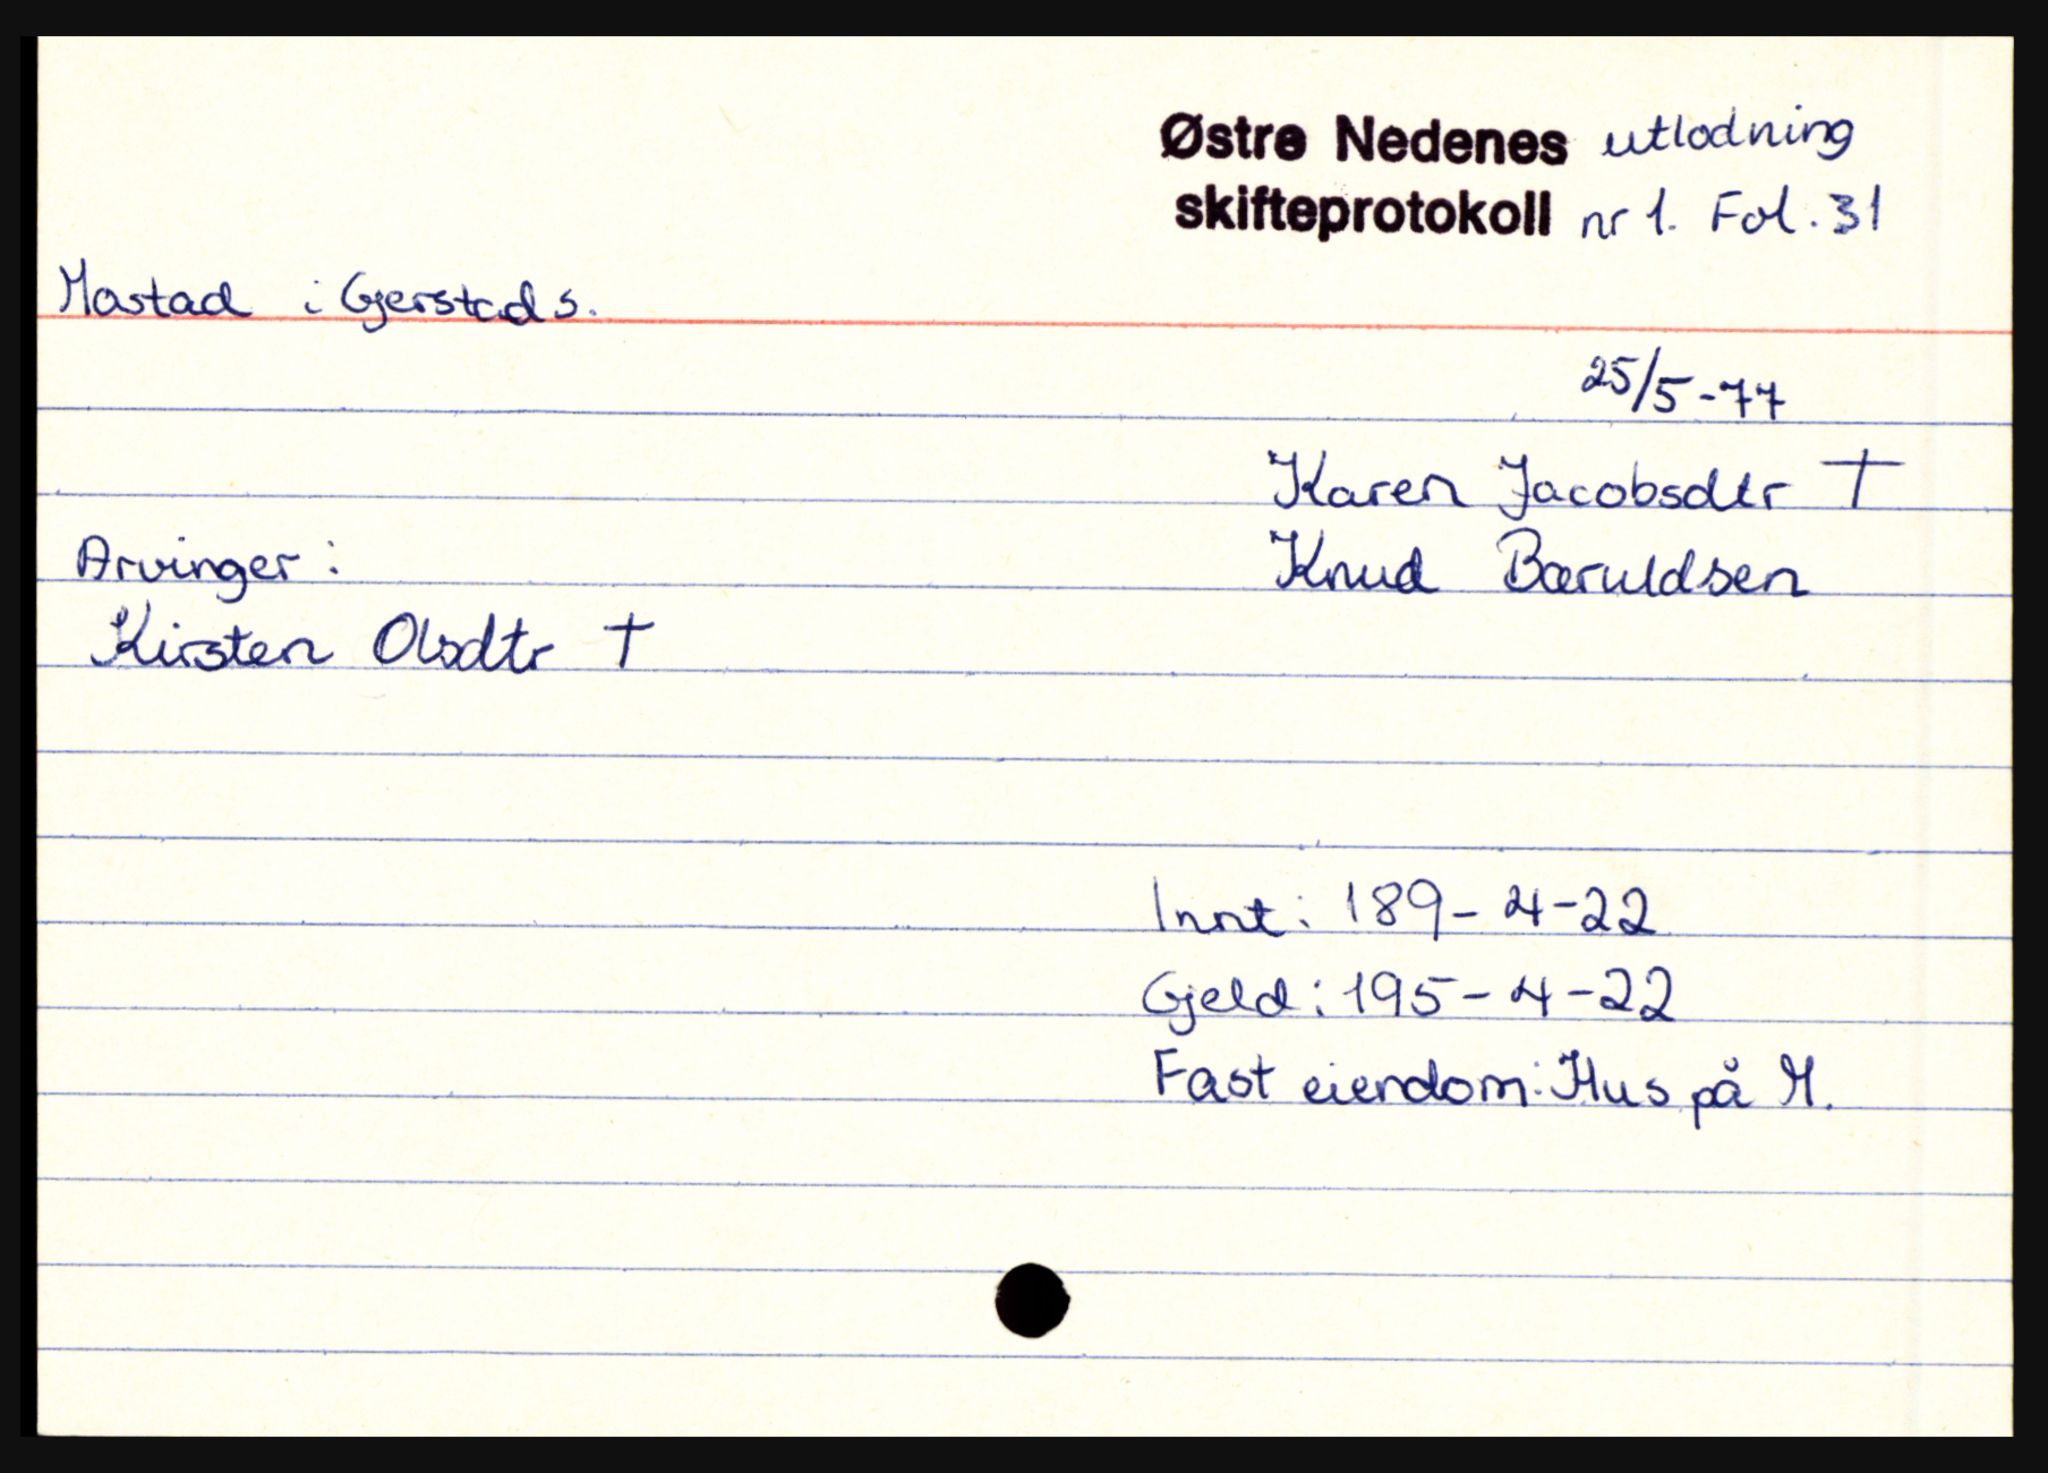 Østre Nedenes utlodning
skifteprotokoll nr 1. Fol. 31
Mostad i Gjerstad s.
25/5-77
Karen Jacobsdtr †
Knud Bæruldsen
Arvinger:
Kirsten Olsdtr †
Innt: 189-4-22
Gjeld: 195-4-22
Fast eiendom: Hus på M.